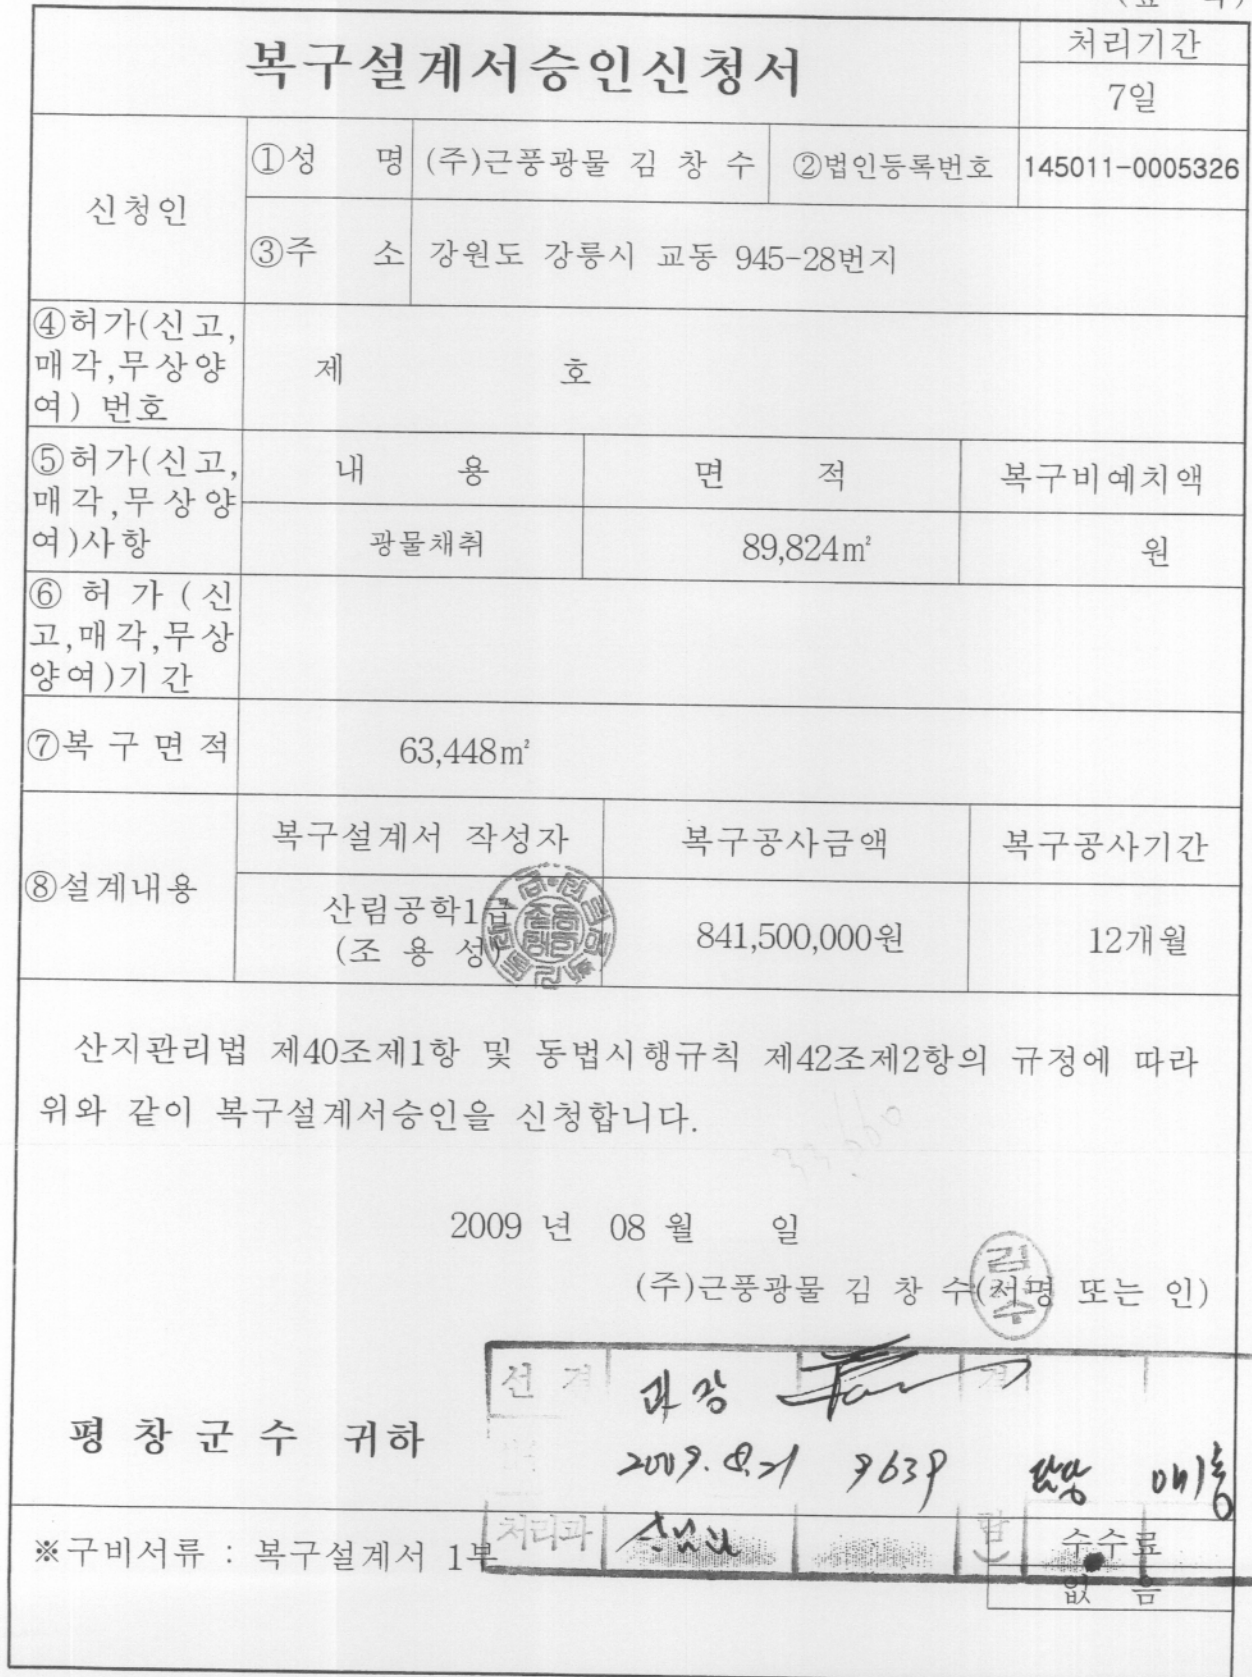 복구설계서승인신청서
처리기간
7일
신청인
①성 명
(주)근풍광물 김 창 수
②법인등록번호
145011-0005326
③주 소
강원도 강릉시 교동 945-28번지
④허가(신고,
매각,무상양
여) 번호
제 호
⑤허가(신고,
매각,무상양
여)사항
내 용
면 적
복구비예치액
광물채취
89,824㎡
원
⑥ 허 가 (신
고,매각,무상
양여)기 간
⑦복 구 면 적
63,448㎡
⑧설계내용
복구설계서 작성자
복구공사금액
복구공사기간
산림공학1급
(조 용 성)
841,500,000원
12개월
산지관리법 제40조제1항 및 동법시행규칙 제42조제2항의 규정에 따라
위와 같이 복구설계서승인을 신청합니다.
2009 년 08 월 일
(주)근풍광물 김 창 수(서명 또는 인)
선 결
과장
평 창 군 수 귀하
2009. 8. 21
9639
처리과
※구비서류 : 복구설계서 1부
수수료
없 음